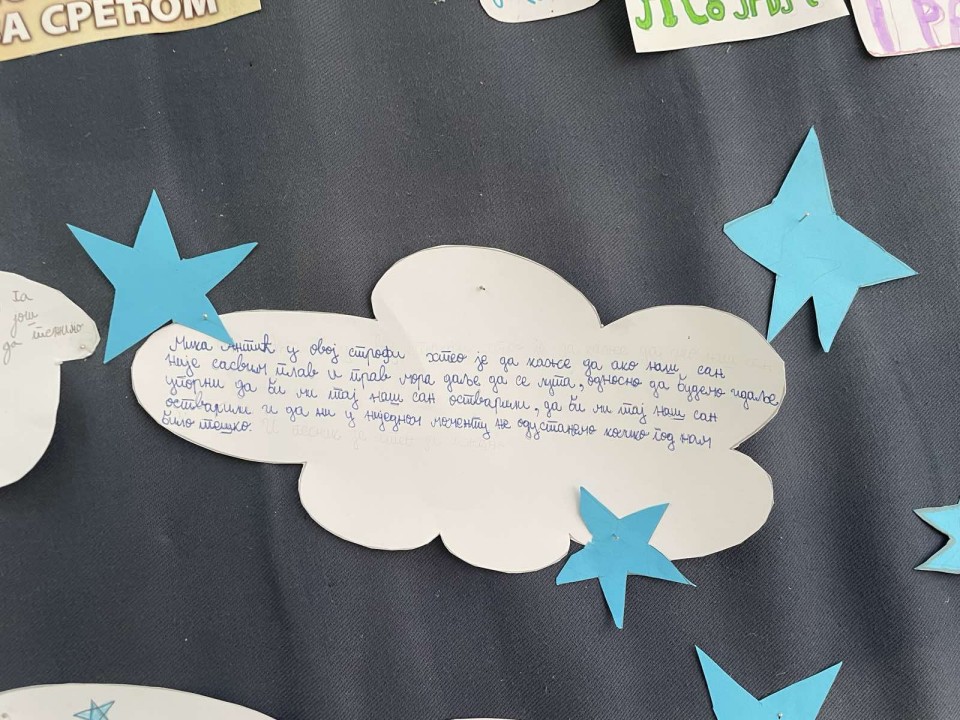 А СРЕЋОМ
Іа
још
да тежимо
Мика Антић у овој строфи хтео је да каже да ако наш сан
није сасвим плав и прав мора даље да се лута, односно да будемо и даље
упорни да би ми тај наш сан остварили, да би ми тај наш сан
остварили и да ни у једном моменту не одустанемо колико год нам
било тешко.